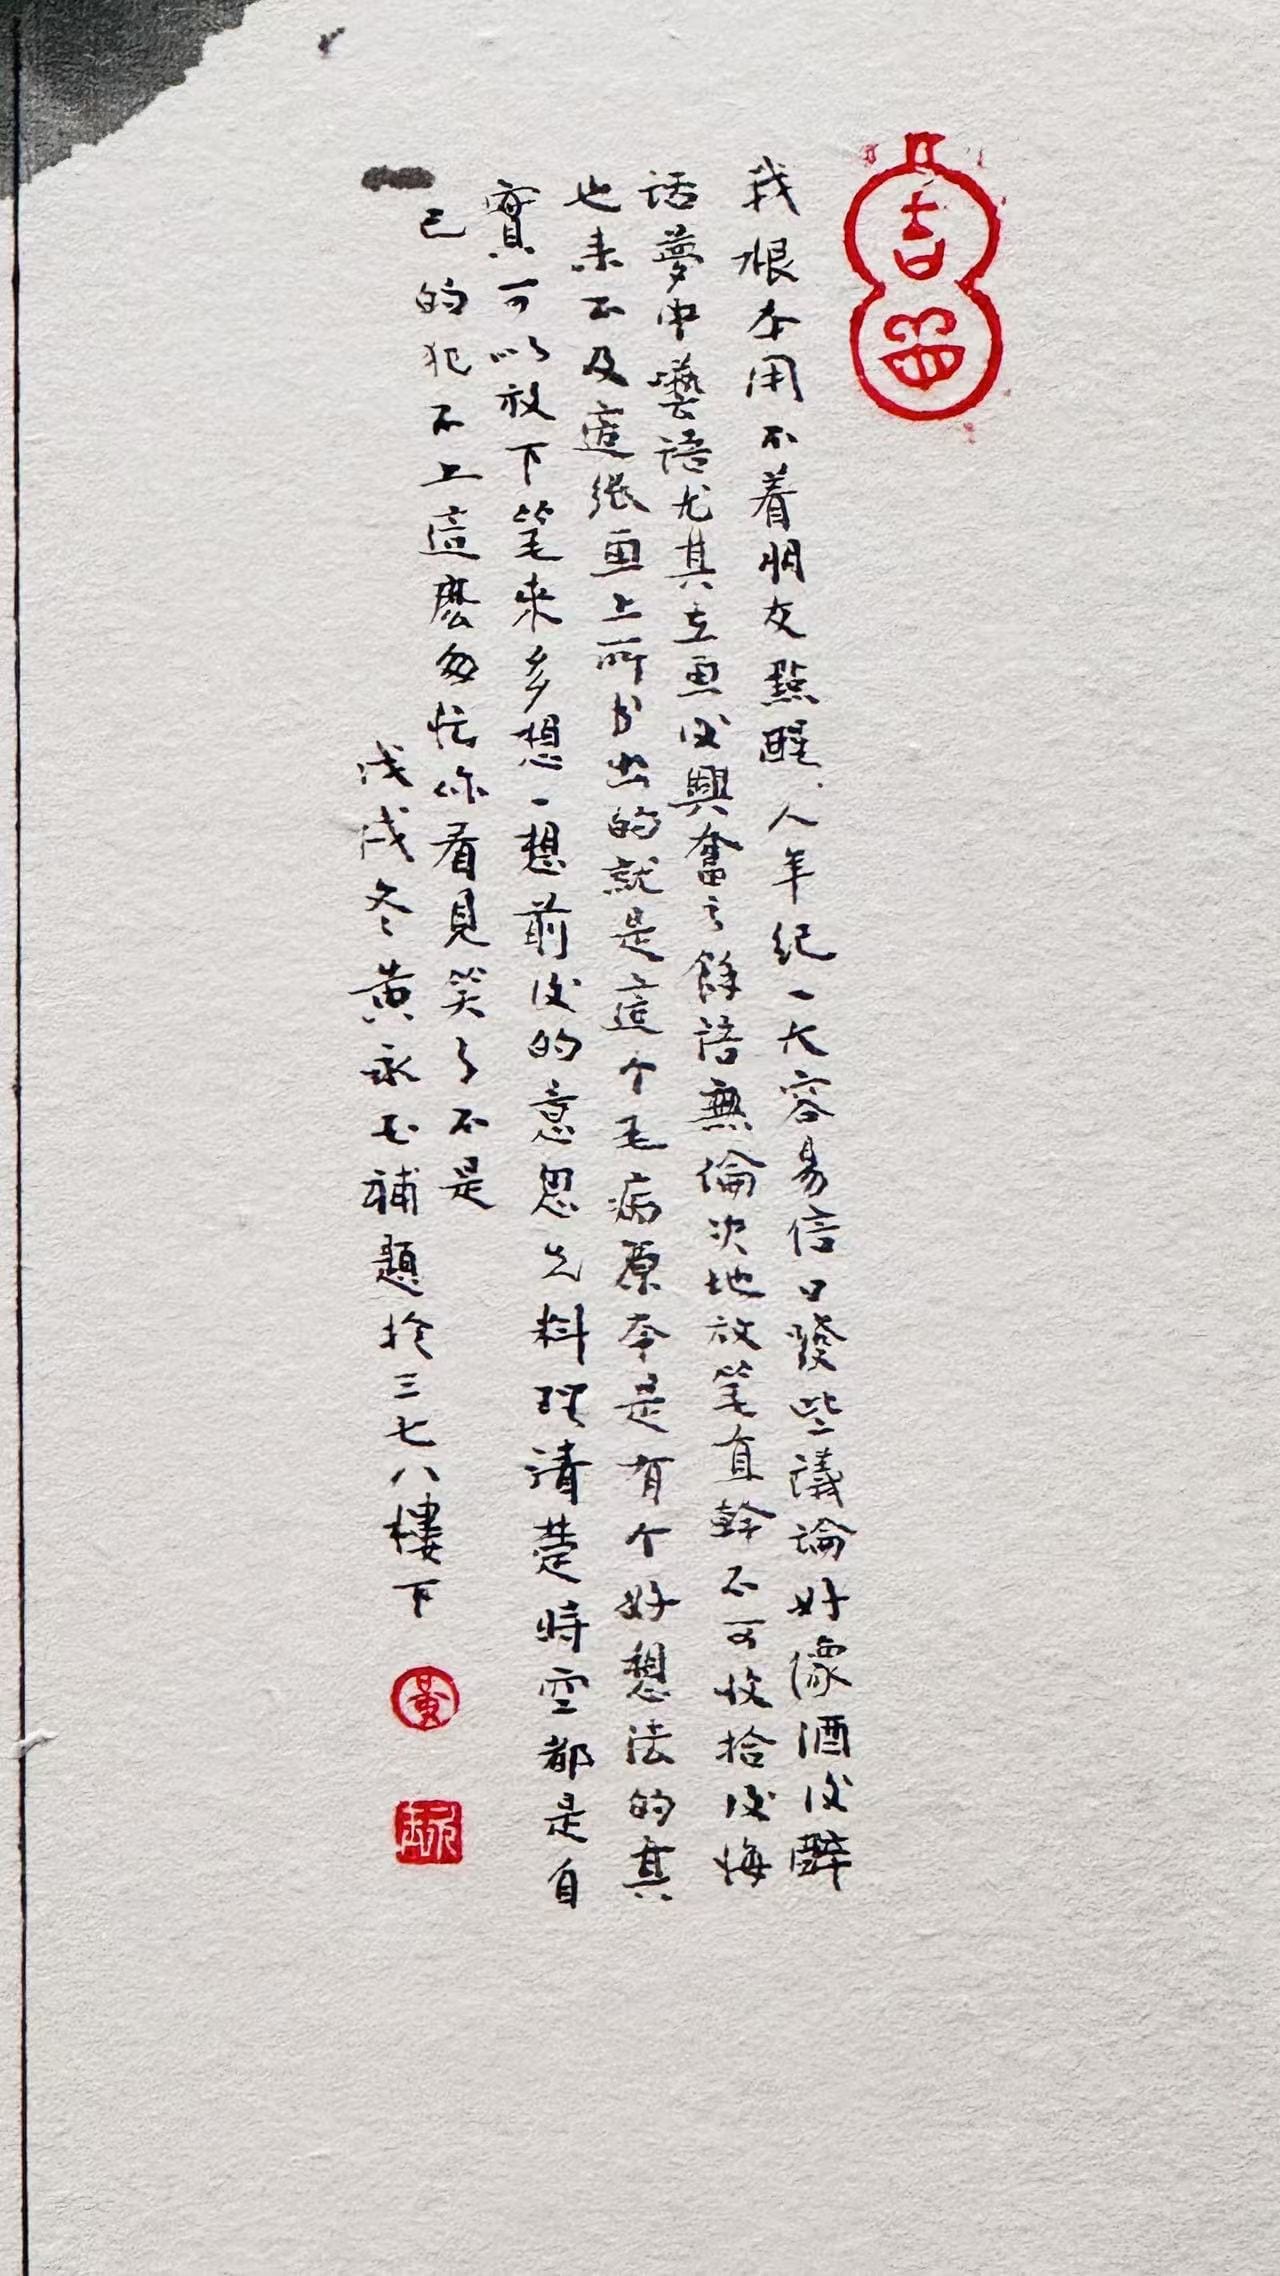 我根本用不着朋友點醒、人年纪一大容易信口發些議論好像酒后醉
話夢中囈語尤其在画后興奮之餘語無倫次地放笔直幹不可收拾后悔
也来不及這張画上所书出的就是這个毛病原本是有个好想法的其
實可以放下笔来多想一想前后的意思先料理清楚時空都是自
己的犯不上這麽匆忙你看見笑了不是
戊戌冬黄永玉補題於三七八樓下
黄